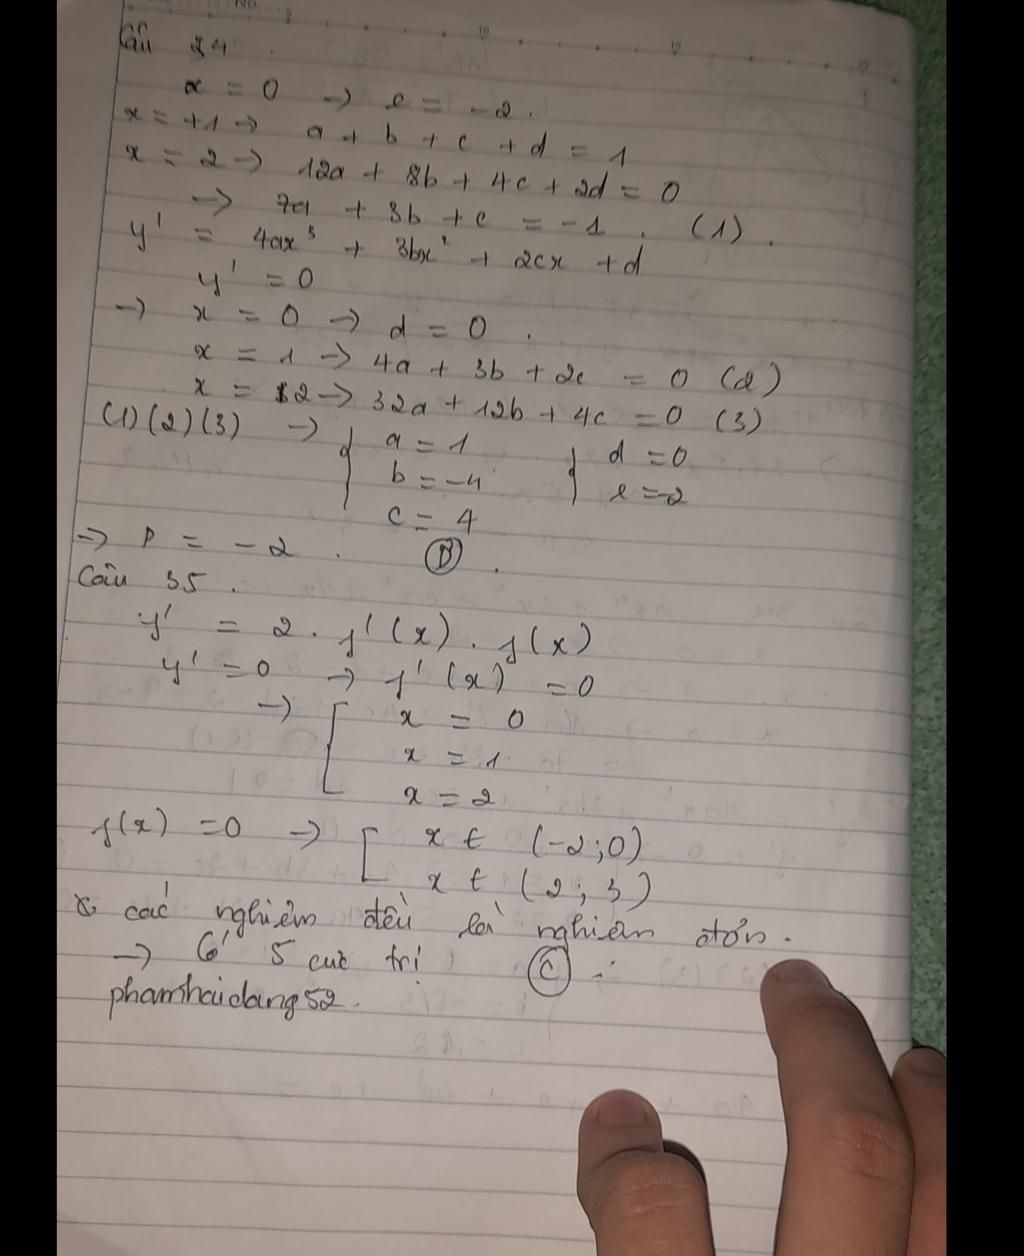 Câu 34.
x = 0 → e = -2.
x = +1 → a + b + c + d = 1
x = 2 → 12a + 8b + 4c + 2d = 0
→ 7a + 3b + c = -1. (1).
y' = 4ax³ + 3bx² + 2cx + d
y' = 0
→ x = 0 → d = 0.
x = 1 → 4a + 3b + 2c = 0 (2)
x = 2 → 32a + 12b + 4c = 0 (3)
(1)(2)(3) → { a = 1 { d = 0
b = -4 e = -2
c = 4
→ P = -2. (B).
Câu 35.
y' = 2. f'(x). f(x)
y' = 0 → f'(x) = 0
→ [ x = 0
x = 1
x = 2
f(x) = 0 → [ x ∈ (-2;0)
x ∈ (2; 3)
các nghiệm đều là nghiệm đơn.
→ Có 5 cực trị (C).
phamhaidang52.